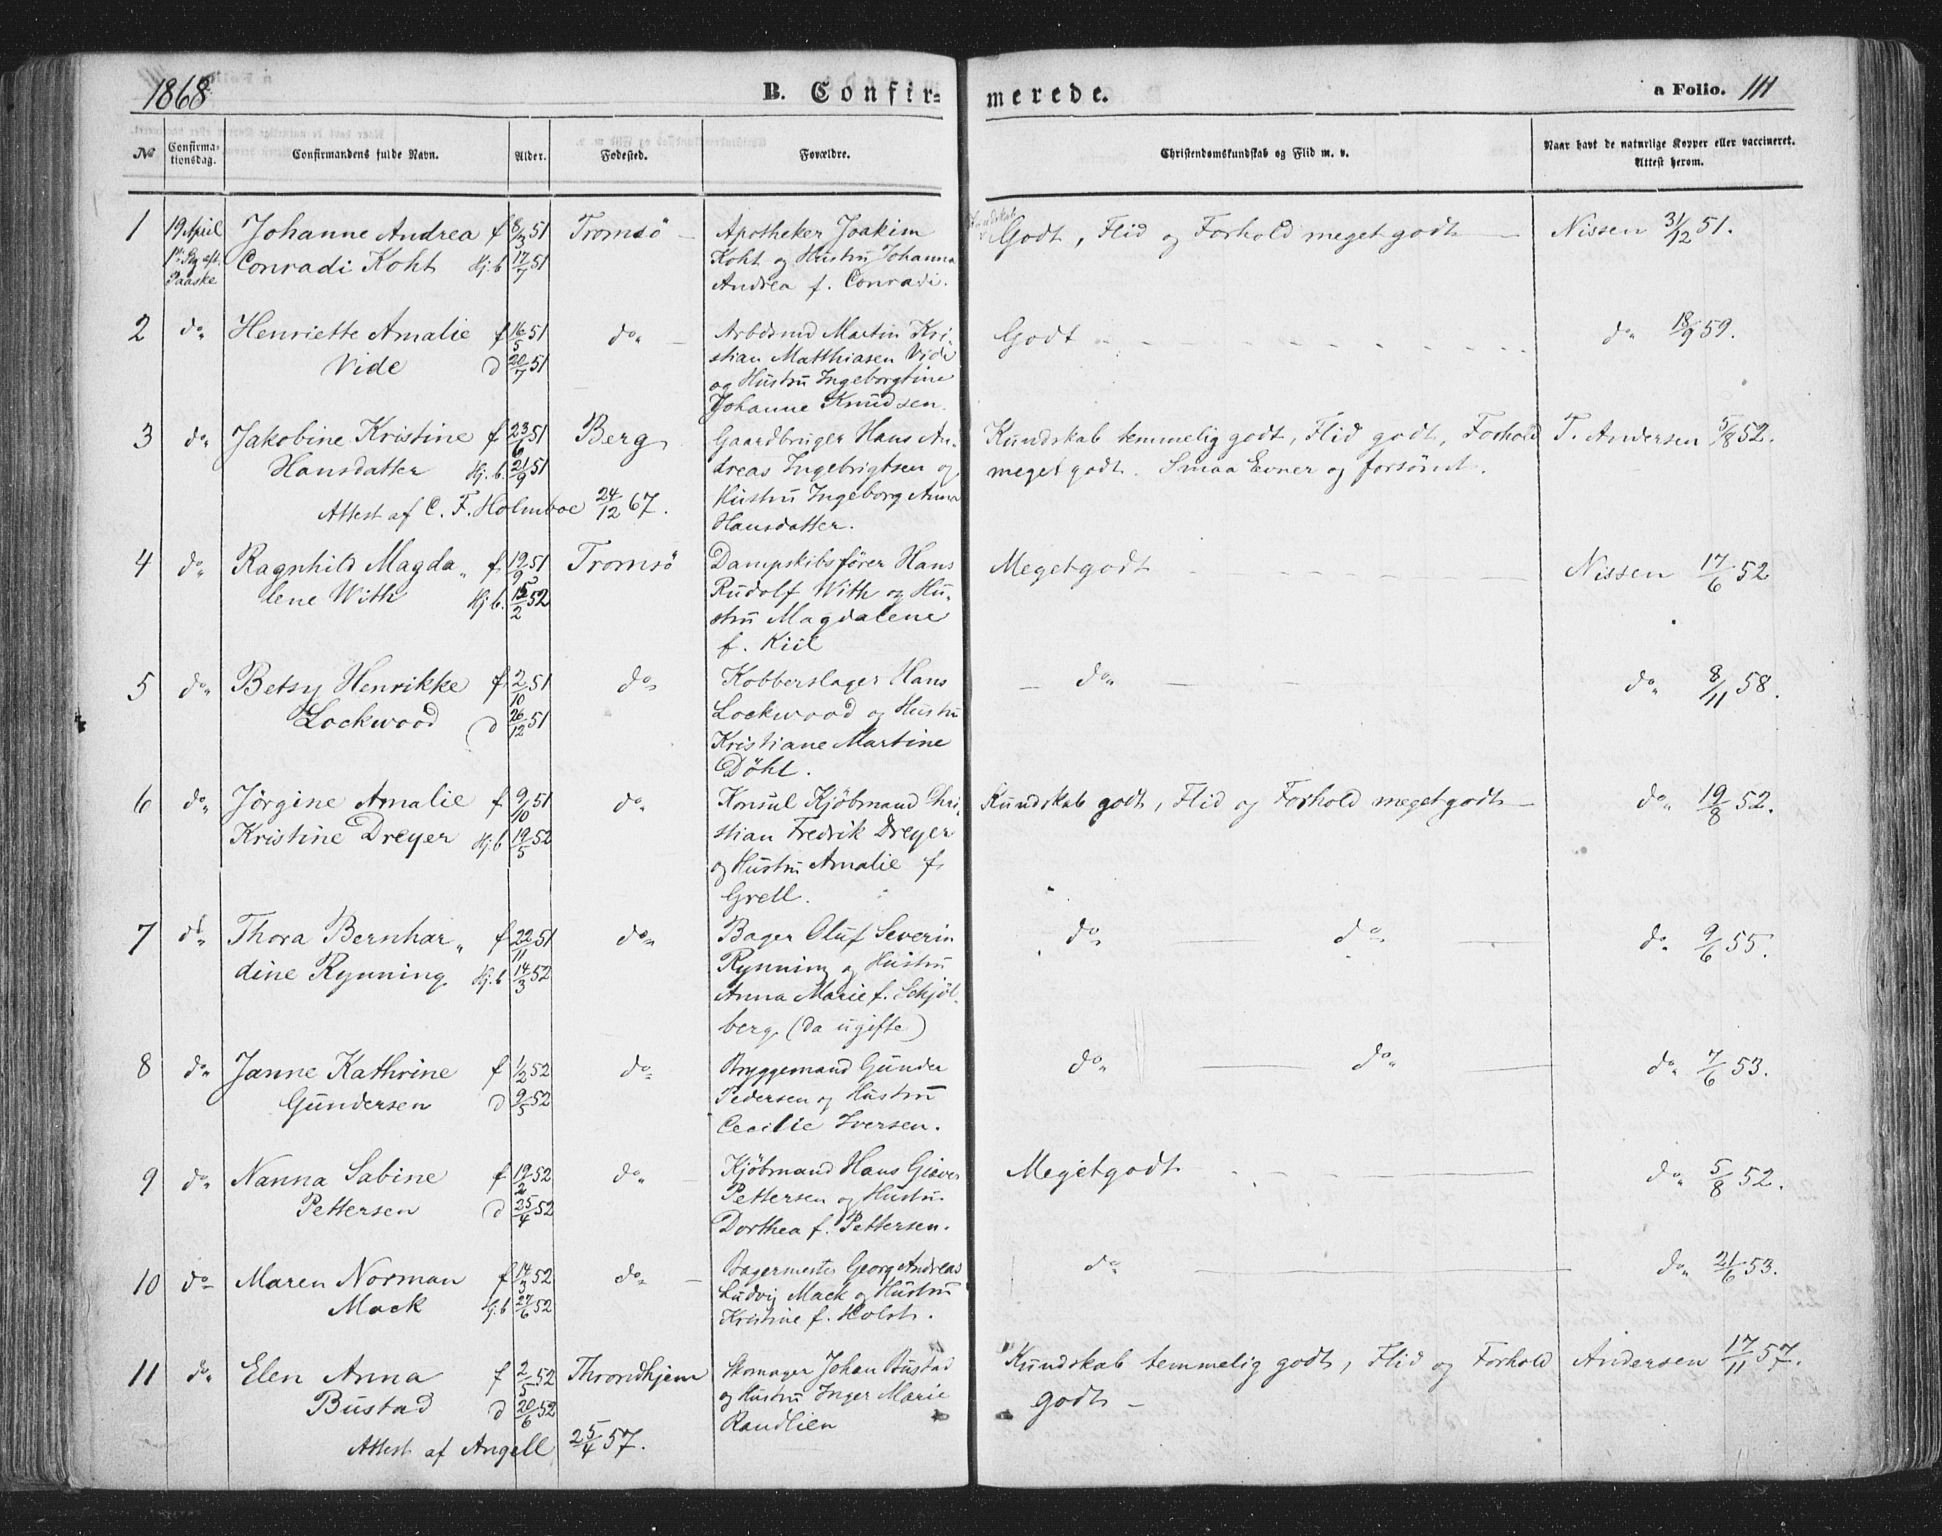 1868
B. Confir-
merede.
a Folio. 111
No
Confirma-
tionsdag.
Confirmandens fulde Navn.
Alder.
Fødested.
Forældre.
Christendomskundskab og Flid m. v.
Naar havt de naturlige Kopper eller vaccineret.
Attest herom.
1 19 April Johanne Andrea f 8/3 51 Tromsö - Apotheker Joakim Kundskab Godt, Flid og Forhold meget godt - Nissen 31/12 51.
1ste Sg eft. Conradi Koht Hj. b 17/7 51 Koht og Hustru Johanna
Paaske Andrea f. Conradi.
2 do. Henriette Amalie f 16/5 51 do. - Arbdsmd Martin Kri- Godt do. 18/9 59.
Vide d 20/7 51 stian Matthiasen Vide
og Hustru Ingeborgtine
Johanne Knudsen.
3 do. Jakobine Kristine f 23/6 51 Berg Gaardbruger Hans An- Kundskab temmelig godt, Flid godt, Forhold T. Andersen 5/8 52.
Hansdatter Hj. b. 21/9 51 dreas Ingebrigtsen og meget godt. Smaa Evner og forsömt.
Attest af C. F. Holmboe 24/12 67. Hustru Ingeborg Anna
Hansdatter.
4 do. Ragnhild Magda„ f. 19/9 51 Tromsö Dampskibsförer Hans Megetgodt Nissen 17/6 52
lene With Hj. b. 15/2 52 Rudolf With og Hu-
stru Magdalene
f. Kiil
5 do. Betsy Henrikke f 2/10 51 do. Kobberslager Hans - do. do. 8/11 58.
Lockwood d 26/12 51 Lockwood og Hustru
Kristiane Martine
Döht.
6 do. Jörgine Amalie f 9/10 51 do. Konsul Kjöbmand Chri- Kundskab godt, Flid og Forhold megetgodt - do. 19/8 52.
Kristine Dreyer Hj. b 19/5 52 stian Fredrik Dreyer
og Hustru Amalie f.
Grell.
7 do. Thora Bernhar„ f 22/11 51 do. Bager Oluf Severin do. do. do. 9/6 55.
dine Rynning Hj. b 14/3 52 Rynning og Hustru
Anna Marie f. Schjöl-
berg. (da ugifte)
8 do. Janne Kathrine f 1/2 52 do. Bryggemand Gunder do. do. do. 7/6 53.
Gundersen d 9/5 52 Pedersen og Hustru
Cecilie Iversen.
9 do. Nanna Sabine f 19/2 52 do. - Kjöbmand Hans Giæver Megetgodt do. 5/8 52.
Pettersen d 25/4 52 Pettersen og Hustru
Dorthea f. Pettersen.
10 do. Maren Norman f 14/3 52 do. - Bagermester Georg Andreas do. do. 21/6 53.
Mack Hj. b 27/6 52 Ludvig Mack og Hustru
Kristine f. Holst.
11 do. Elen Anna f 2/5 52 Throndhjem Skomager Johan Bustad Kundskab temmelig godt, Flid og Forhold Andersen 17/11 57.
Bustad d 20/6 52 og Hustru Inger Marie godt -
Attest af Angell 25/4 57. Randlien